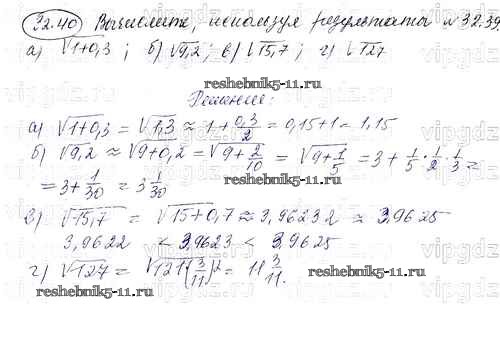 32.40 Вычислить, используя результаты №32.39
а) √1+0,3; б) √9,2; в) √15,7; г) √127
reshebnik5-11.ru
Решение:
а) √1+0,3 = √1,3 ≈ 1 + 0,3/2 = 0,15+1 = 1,15
б) √9,2 ≈ √9+0,2 = √9+2/10 = √9+1/5 = 3 + 1/5 · 1/2 · 1/3 =
= 3 + 1/30 = 3 1/30
reshebnik5-11.ru
в) √15,7 = √15+0,7 ≈ 3,96232 ≈ 3,9625
3,9622 < 3,9623 < 3,9625
г) √127 = √121(3/11)² = 11 3/11.
reshebnik5-11.ru
reshebnik5-11.ru
vipgdz